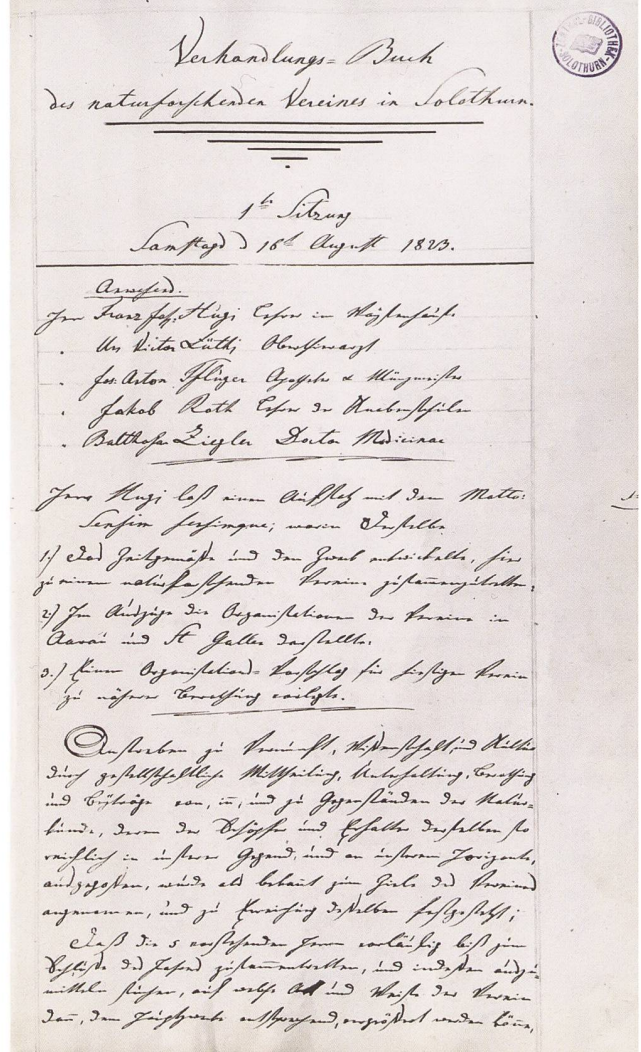 ZENTRAL-BIBLIOTHEK SOLOTHURN
Verhandlungs-Buch
des naturforschenden Vereines in Solothurn.
1te Sitzung
Samstags d 16t August 1823.
Anwesend.
Herr Franz Jos. Hugi Lehrer im Waysenhause
" Urs Victor Lüthj Oberthierarzt
" Jos. Anton Pflüger Apotheker & Münzmeister
" Jakob Roth Lehrer der Knabenschulen
" Balthasar Ziegler Doctor Medicinae
Herr Hugi las einen Aufsatz mit dem Motto:
Sensim sensimque; worin Derselbe
1.) Das Zeitgemäße und den Zweck entwickelte, hier
zu einem naturforschenden Vereine zusammenzutretten.
2.) Im Auszuge die Organisationen der Vereine in
Aarau und St Gallen darstellte.
3.) Einen Organisations-Vorschlag für hiesigen Verein
zu näherer Berathung vorlegte.
Anstreben zu Vernunft, Wissenschaft und Kultur
durch gesellschaftliche Mittheilung, Unterhaltung, Berathung
und Beyträge von, in, und zu Gegenständen der Natur-
kunde, deren der Schöpfer und Erhalter derselben so
reichlich in unserer Gegend, und an unserem Horizonte,
ausgegossen, wurde als bekannt zum Ziele des Vereines
angenommen, und zu Erreichung desselben festgesetzt;
Daß die 5 vorstehenden Herrn vorläufig biß zum
Schluße des Jahres zusammentretten, und indessen auszu-
mitteln suchen, auf welche Art und Weise der Verein
dann, dem Hauptzwecke entsprechend, vergrößert werden könne,